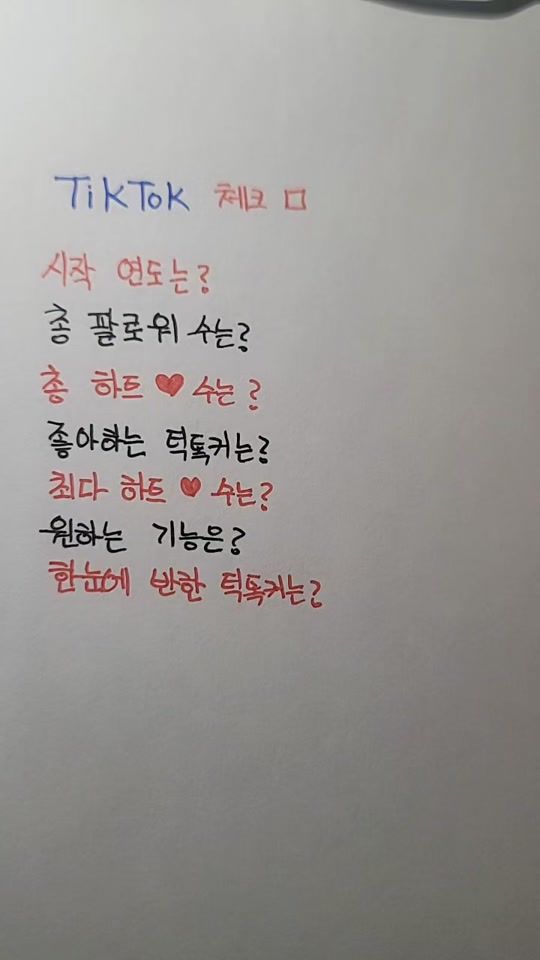 TikTok 체크 □
시작 연도는?
총 팔로워 수는?
총 하트 ♥ 수는?
좋아하는 턱톡커는?
최다 하트 ♥ 수는?
원하는 기능은?
한눈에 반한 턱톡커는?